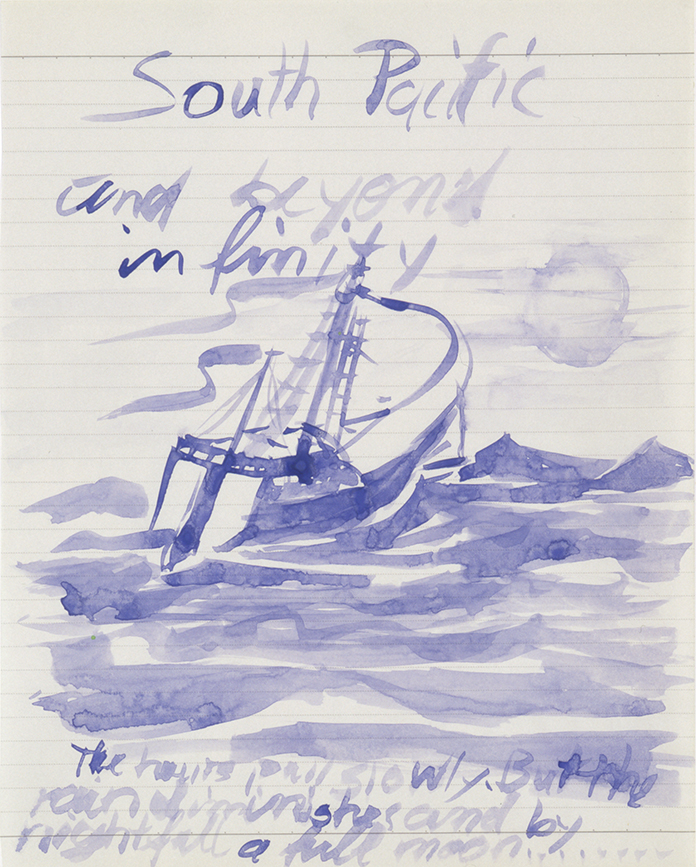 South Pacific
and beyond
infinity
The hours pull slowly. But the
rain diminishes and by
nightfall a full moon.........